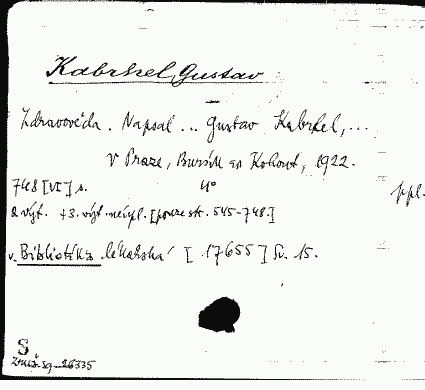 Kabrhel, Gustav
Zdravověda. Napsal ... Gustav Kabrhel, ...
v Praze, Bursík & Kohout, 1922.
748 [VI] s. 4° ppl.
2 výt. + 3. výt. neúpl. [pouze str. 545-748.]
v. Bibliotéka lékařská [17655] Sv. 15.
S
sg. 26335